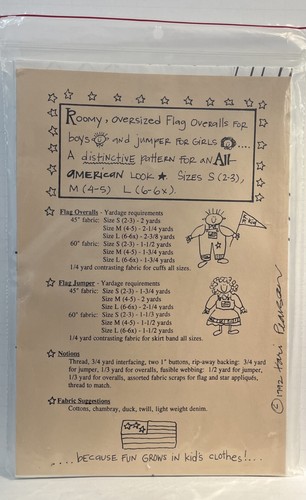 Roomy, oversized Flag Overalls for
boys and jumper for girls ....
A distinctive pattern for an All-
American look ★ Sizes S (2-3),
M (4-5) L (6-6x).
Flag Overalls - Yardage requirements
45" fabric: Size S (2-3) - 2 yards
Size M (4-5) - 2-1/4 yards
Size L (6-6x) - 2-3/8 yards
60" fabric: Size S (2-3) - 1-1/2 yards
Size M (4-5) - 1-3/4 yards
Size L (6-6x) - 1-3/4 yards
1/4 yard contrasting fabric for cuffs all sizes.
Flag Jumper - Yardage requirements
45" fabric: Size S (2-3) - 1-3/4 yards
Size M (4-5) - 2 yards
Size L (6-6x) - 2-1/4 yards
60" fabric: Size S (2-3) - 1-1/3 yards
Size M (4-5) - 1-1/2 yards
Size L (6-6x) - 1-1/2 yards
1/4 yard contrasting fabric for skirt band all sizes.
Notions
Thread, 3/4 yard interfacing, two 1" buttons, rip-away backing: 3/4 yard
for jumper, 1/3 yard for overalls, fusible webbing: 1/2 yard for jumper,
1/3 yard for overalls, assorted fabric scraps for flag and star appliqués,
thread to match.
Fabric Suggestions
Cottons, chambray, duck, twill, light weight denim.
©1992 Teri
....because fun grows in kid's clothes!....